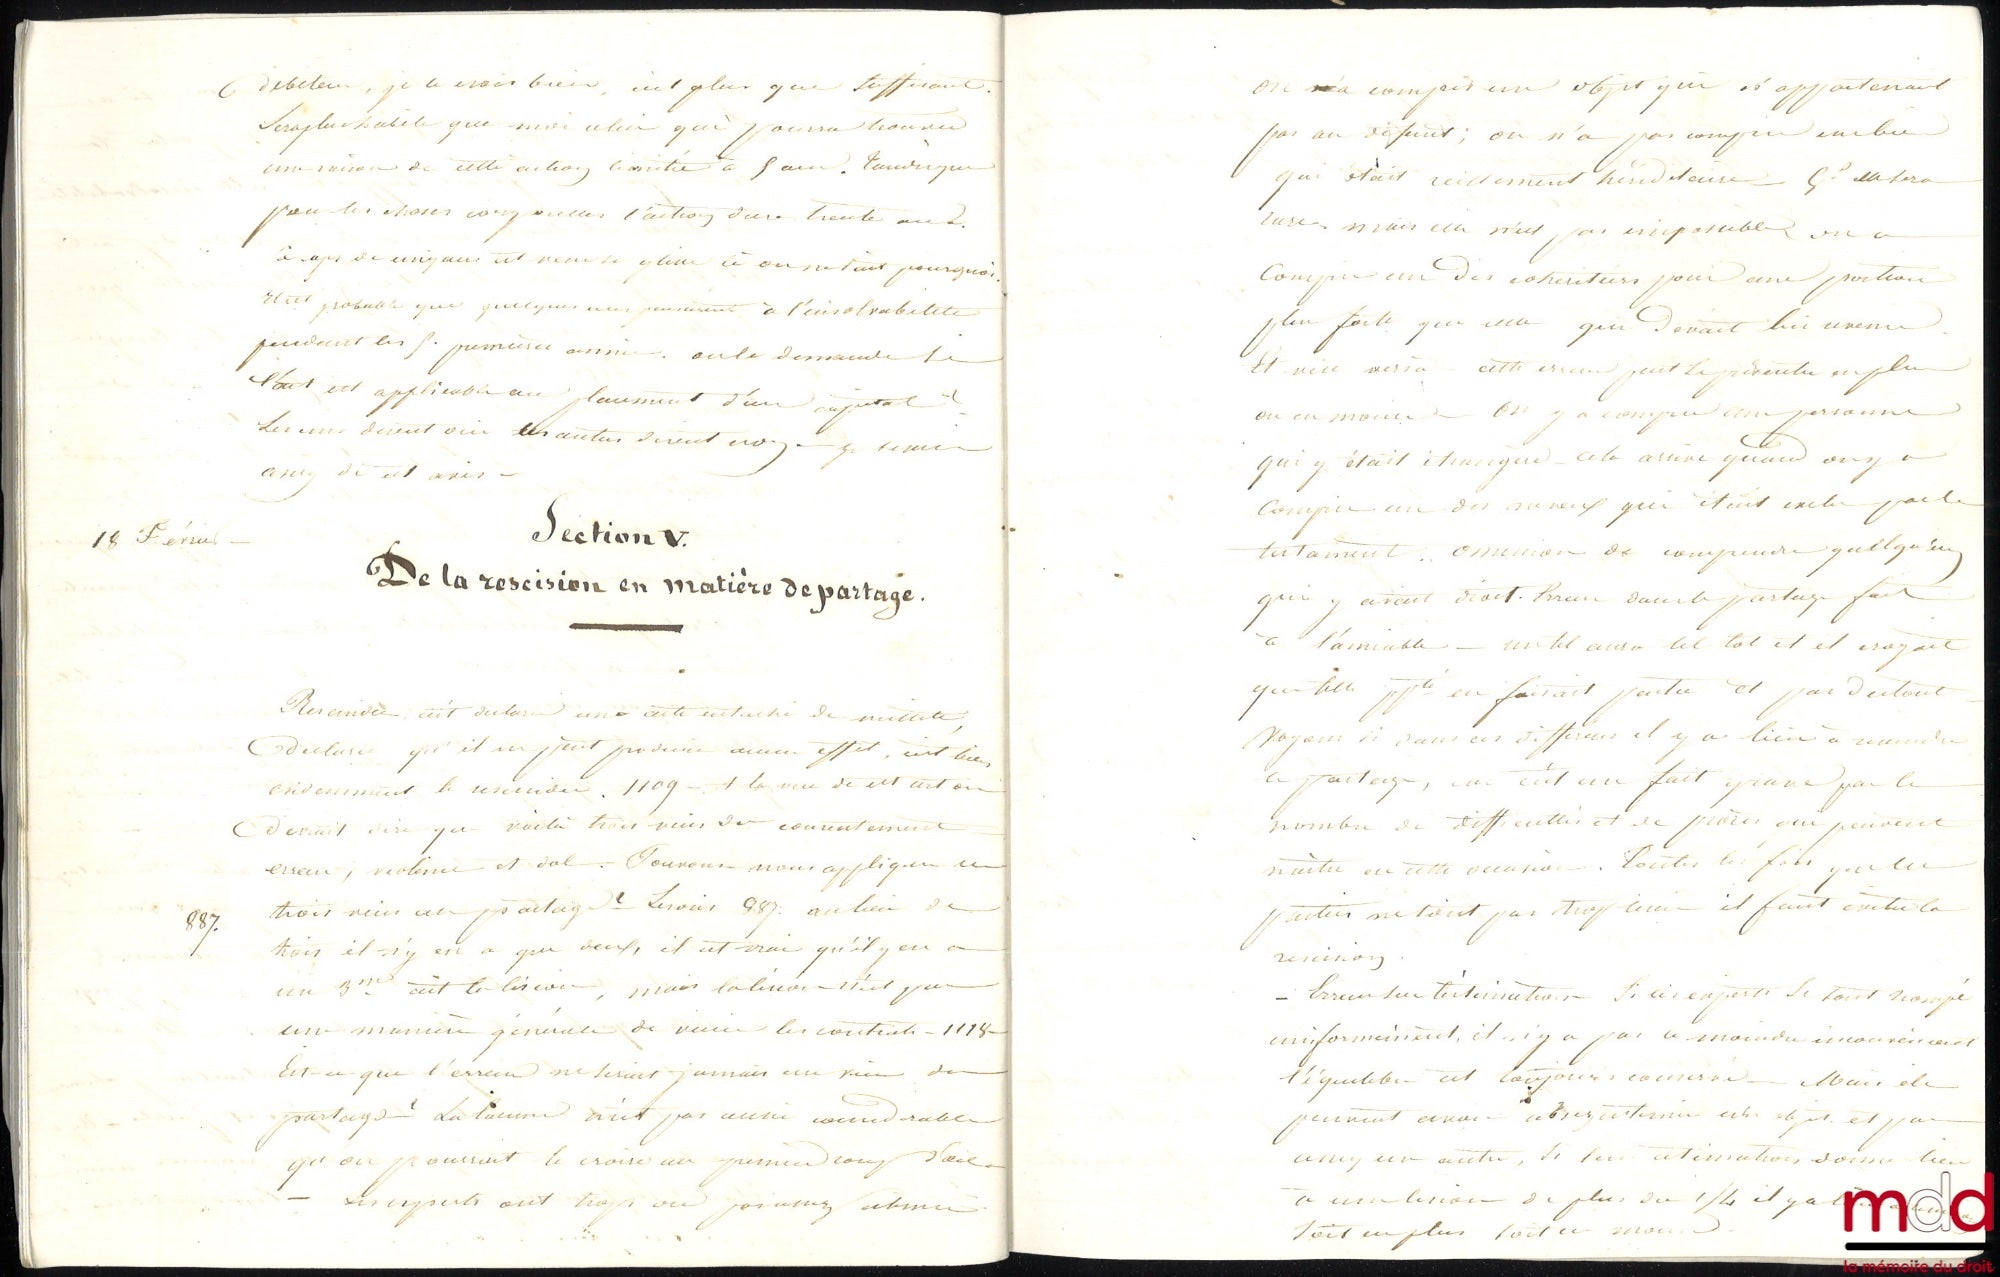 débiteur, je le crois bien, est plus que suffisant.
Sera plus habile que moi celui qui pourra trouver
une raison de cette action limitée à 5 ans. Tandis que
pour les choses corporelles l'action dure trente ans.
on ne sait pourquoi.
Il est probable que quelques uns à l'insolvabilité
pendant les 5 premières années. on le demande si
l'art est applicable au placement d'un capital ?
Les uns disent oui les autres disent non
assez de cet avis -
18 Février -
Section V.
De la rescision en matière de partage.
Rescinder, c'est déclarer un acte entaché de nullité,
Déclarer qu'il ne peut produire aucun effet, c'est bien
évidemment le rescinder. 1109 - A la vue de cet art on
Devrait dire que voilà trois vices de consentement
erreur, violence et dol. Pouvons nous appliquer ces
trois vices au partage ? Lisons 887. au lieu de
887.
trois il n'y en a que deux, il est vrai qu'il y en a
un 3me c'est la lésion, mais la lésion n'est pas
une manière générale de vicier les contrats - 1118 -
Est-ce que l'erreur ne serait jamais un vice de
partage ? La lacune n'est pas aussi considérable
qu'on pourrait le croire au premier coup d'œil
- Les experts ont trop ou pas assez estimé
On a compris un objet qui n'appartenait
pas au défunt ; on n'a pas compris un bien
qui était réellement héréditaire - elle sera
rare mais elle n'est pas impossible on a
Compris un des cohéritiers pour une portion
plus forte que celle qui devait lui revenir.
Et vice versa - cette erreur peut se présenter en plus
ou en moins - On y a compris une personne
qui y était étrangère - cela arrive quand on y a
Compris un des neveux qui était exclu par le
testament. omission de comprendre quelqu'un
qui y avait droit. Erreur dans le partage fait
à l'amiable - un tel aura tel lot et il croyait
que telle ppté en faisait partie et pas du tout -
Voyons si dans ces différents il y a lieu à rescinder
le partage, car c'est un fait grave par le
nombre de difficultés et de procès qui peuvent
naître en cette occasion. Toutes les fois que les
parties ne sont pas trop lésées il faut éviter la
rescision.
- Erreur sur l'estimation Si les experts se sont trompés
uniformément, il n'y a pas le moindre inconvénient
l'équilibre est toujours conservé - Mais ils
peuvent avoir trop estimé un objet et pas
assez un autre, Si leur estimation donne lieu
à une lésion de plus du 1/4 il y a
Soit en plus soit en moins.
mdd
la mémoire du droit